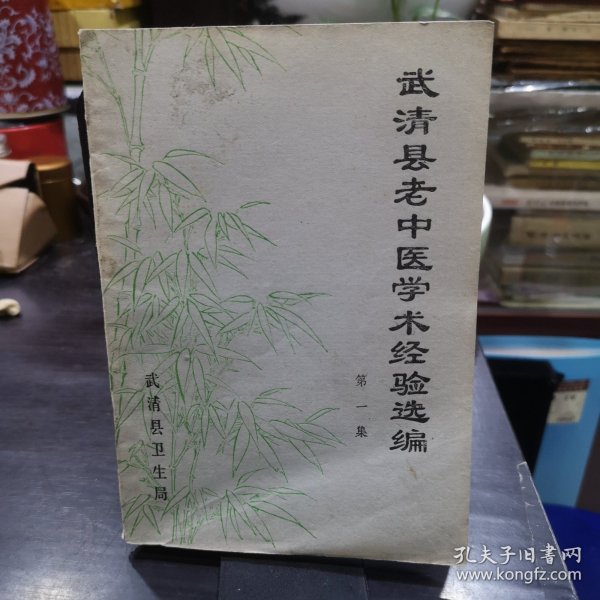 武清县老中医学术经验选编
第一集
武清县卫生局
孔夫子旧书网
www.kongfz.com